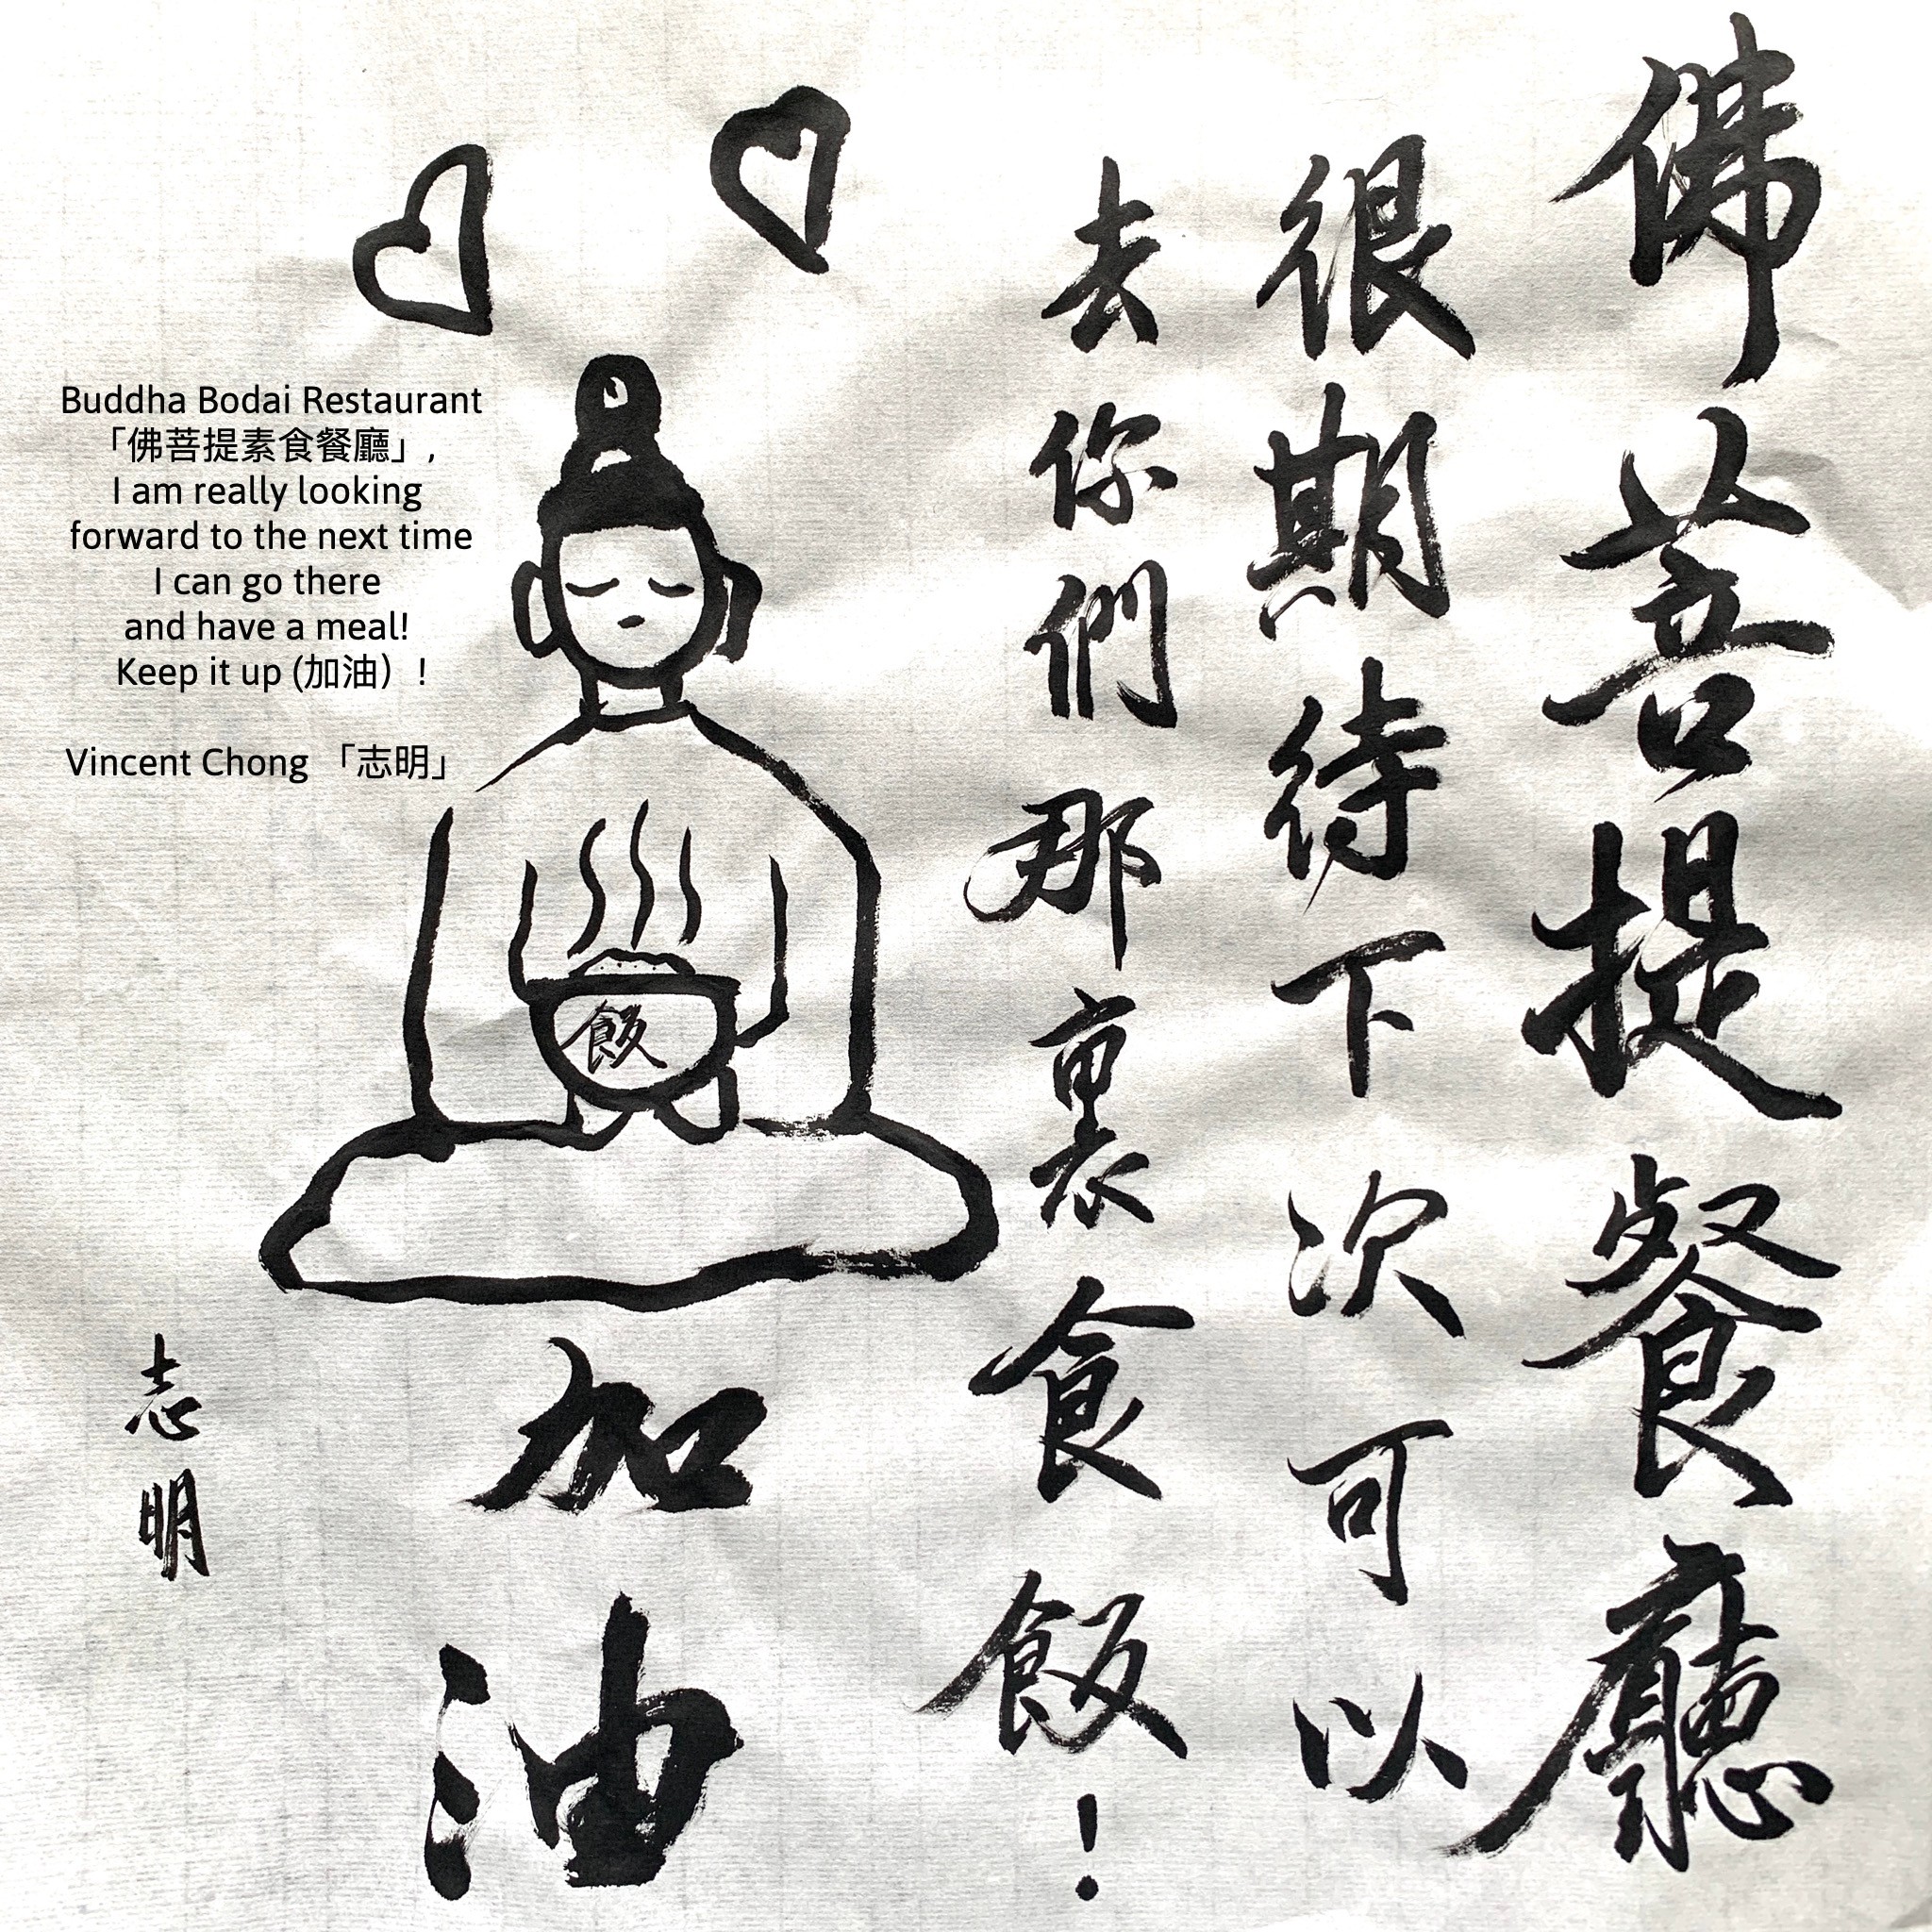 佛菩提餐廳
很期待下次可以
去你們那裏食飯！
飯
加油
志明
Buddha Bodai Restaurant
「佛菩提素食餐廳」,
I am really looking
forward to the next time
I can go there
and have a meal!
Keep it up (加油）!
Vincent Chong 「志明」